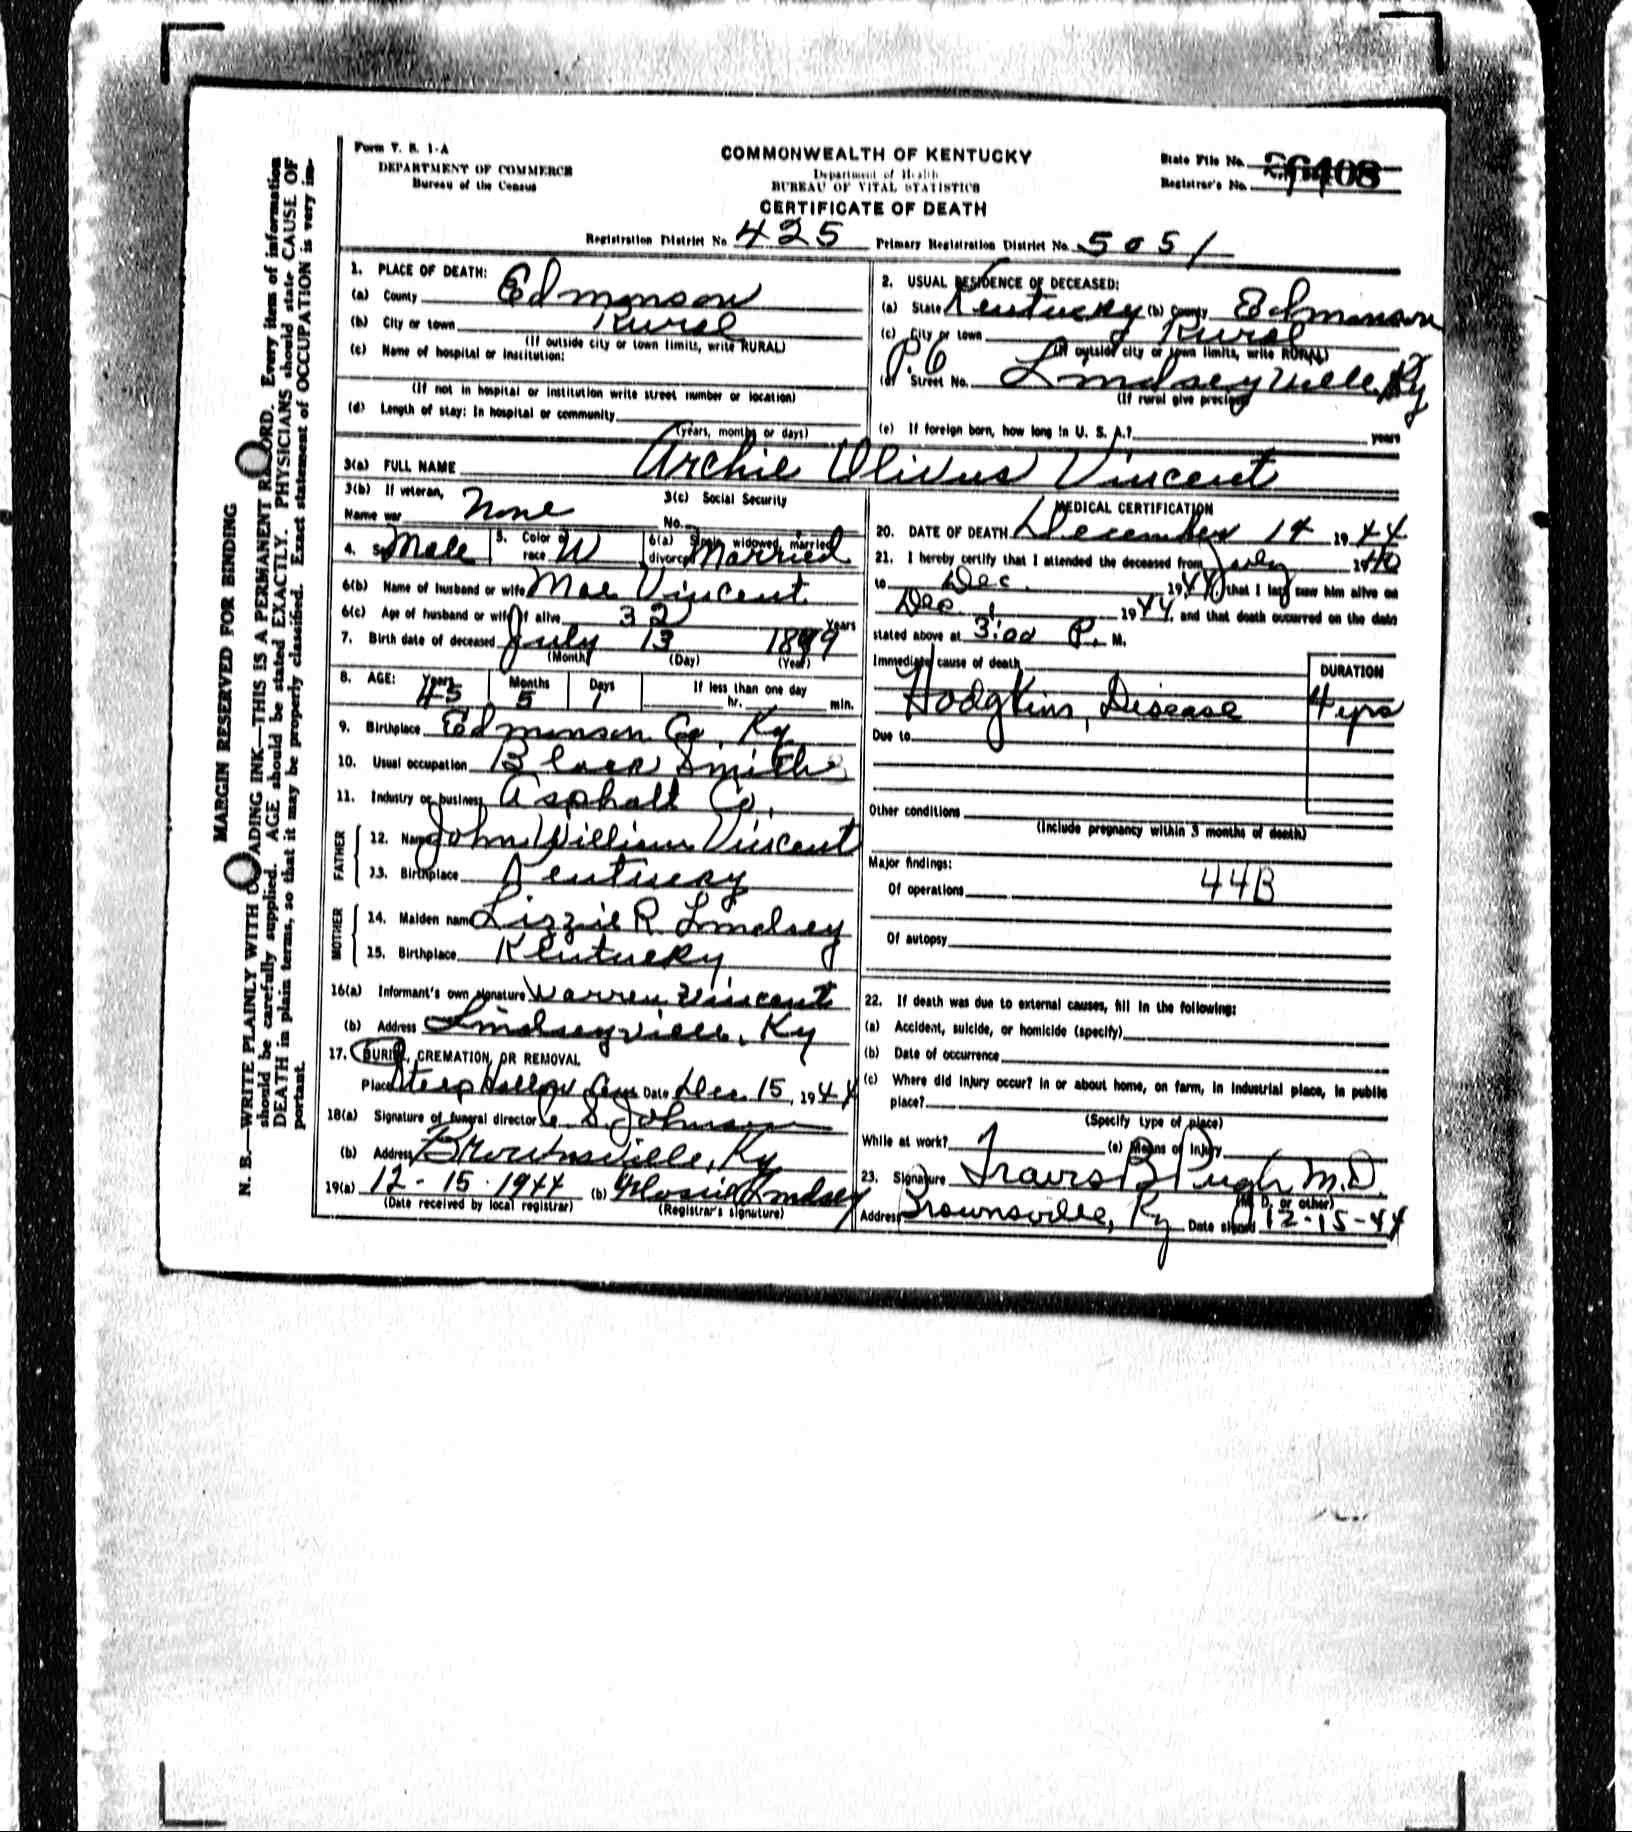 Form V. S. 1-A
DEPARTMENT OF COMMERCE
Bureau of the Census
COMMONWEALTH OF KENTUCKY
Department of Health
BUREAU OF VITAL STATISTICS
CERTIFICATE OF DEATH
State File No.
Registrar's No.
Registration District No. 425 Primary Registration District No. 5051
MARGIN RESERVED FOR BINDING
N. B.—WRITE PLAINLY WITH UNFADING INK—THIS IS A PERMANENT RECORD. Every item of information
should be carefully supplied. AGE should be stated EXACTLY. PHYSICIANS should state CAUSE OF
DEATH in plain terms, so that it may be properly classified. Exact statement of OCCUPATION is very im-
portant.
1. PLACE OF DEATH:
(a) County Edmonson
(b) City or town Rural
(If outside city or town limits, write RURAL)
(c) Name of hospital or institution:
(If not in hospital or institution write street number or location)
(d) Length of stay: In hospital or community
(years, months or days)
2. USUAL RESIDENCE OF DECEASED:
(a) State Kentucky (b) County Edmonson
(c) City or town Rural
(If outside city or town limits, write RURAL)
(d) Street No. Lindseyville, Ky
(If rural give precinct)
(e) If foreign born, how long in U. S. A.? years
3(a) FULL NAME Archie Olivus Vincent
3(b) If veteran, Name war None
3(c) Social Security No.
4. Sex Male 5. Color or race W 6(a) Single, widowed, married, divorced Married
6(b) Name of husband or wife Mae Vincent
6(c) Age of husband or wife if alive 32 Years
7. Birth date of deceased July 13 1899
(Month) (Day) (Year)
8. AGE: Years 45 Months 5 Days 1 If less than one day hr. min.
9. Birthplace Edmonson Co, Ky
10. Usual occupation Black Smith
11. Industry or business Asphalt Co.
FATHER
12. Name John William Vincent
13. Birthplace Kentucky
MOTHER
14. Maiden name Lizzie R. Lindsey
15. Birthplace Kentucky
16(a) Informant's own signature Warren Vincent
(b) Address Lindseyville, Ky
17. BURIAL, CREMATION, OR REMOVAL
Place Steep Hollow Cem Date Dec. 15, 1944
18(a) Signature of funeral director S. Johnson
(b) Address Brownsville, Ky
19(a) 12-15-1944 (b) Lindsey
(Date received by local registrar) (Registrar's signature)
MEDICAL CERTIFICATION
20. DATE OF DEATH December 14 1944
21. I hereby certify that I attended the deceased from July 1940
to Dec. 1944, that I last saw him alive on
Dec 1 1944, and that death occurred on the date
stated above at 3:00 P. M.
Immediate cause of death
DURATION
Hodgkins, Disease 4 yrs
Due to
Other conditions
(Include pregnancy within 3 months of death)
Major findings:
Of operations 44B
Of autopsy
22. If death was due to external causes, fill in the following:
(a) Accident, suicide, or homicide (specify)
(b) Date of occurrence
(c) Where did injury occur? In or about home, on farm, in industrial place, in public
place?
(Specify type of place)
While at work? (e) Means of Injury
23. Signature Travis B Pugh M.D.
(M. D. or other)
Address Brownsville, Ky Date signed 12-15-44